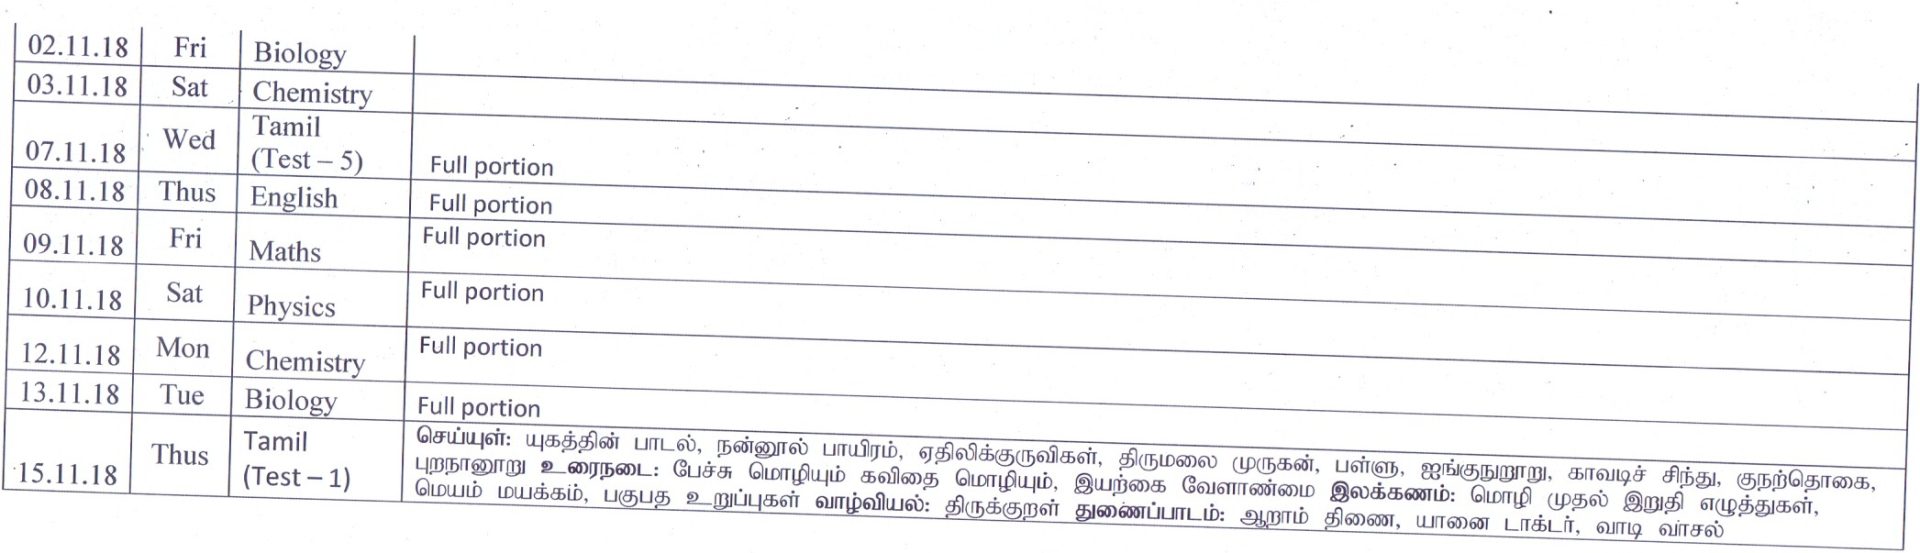 02.11.18 Fri Biology
03.11.18 Sat Chemistry
07.11.18 Wed Tamil
(Test – 5) Full portion
08.11.18 Thus English Full portion
09.11.18 Fri Maths Full portion
10.11.18 Sat Physics Full portion
12.11.18 Mon Chemistry Full portion
13.11.18 Tue Biology Full portion
15.11.18 Thus Tamil
(Test – 1)
செய்யுள்: யுகத்தின் பாடல், நன்னூல் பாயிரம், ஏதிலிக்குருவிகள், திருமலை முருகன், பள்ளு, ஐங்குநுறூறு, காவடிச் சிந்து, குநற்தொகை,
புறநானூறு உரைநடை: பேச்சு மொழியும் கவிதை மொழியும், இயற்கை வேளாண்மை இலக்கணம்: மொழி முதல் இறுதி எழுத்துகள்,
மெயம் மயக்கம், பகுபத உறுப்புகள் வாழ்வியல்: திருக்குறள் துணைப்பாடம்: ஆறாம் திணை, யானை டாக்டர், வாடி வாசல்